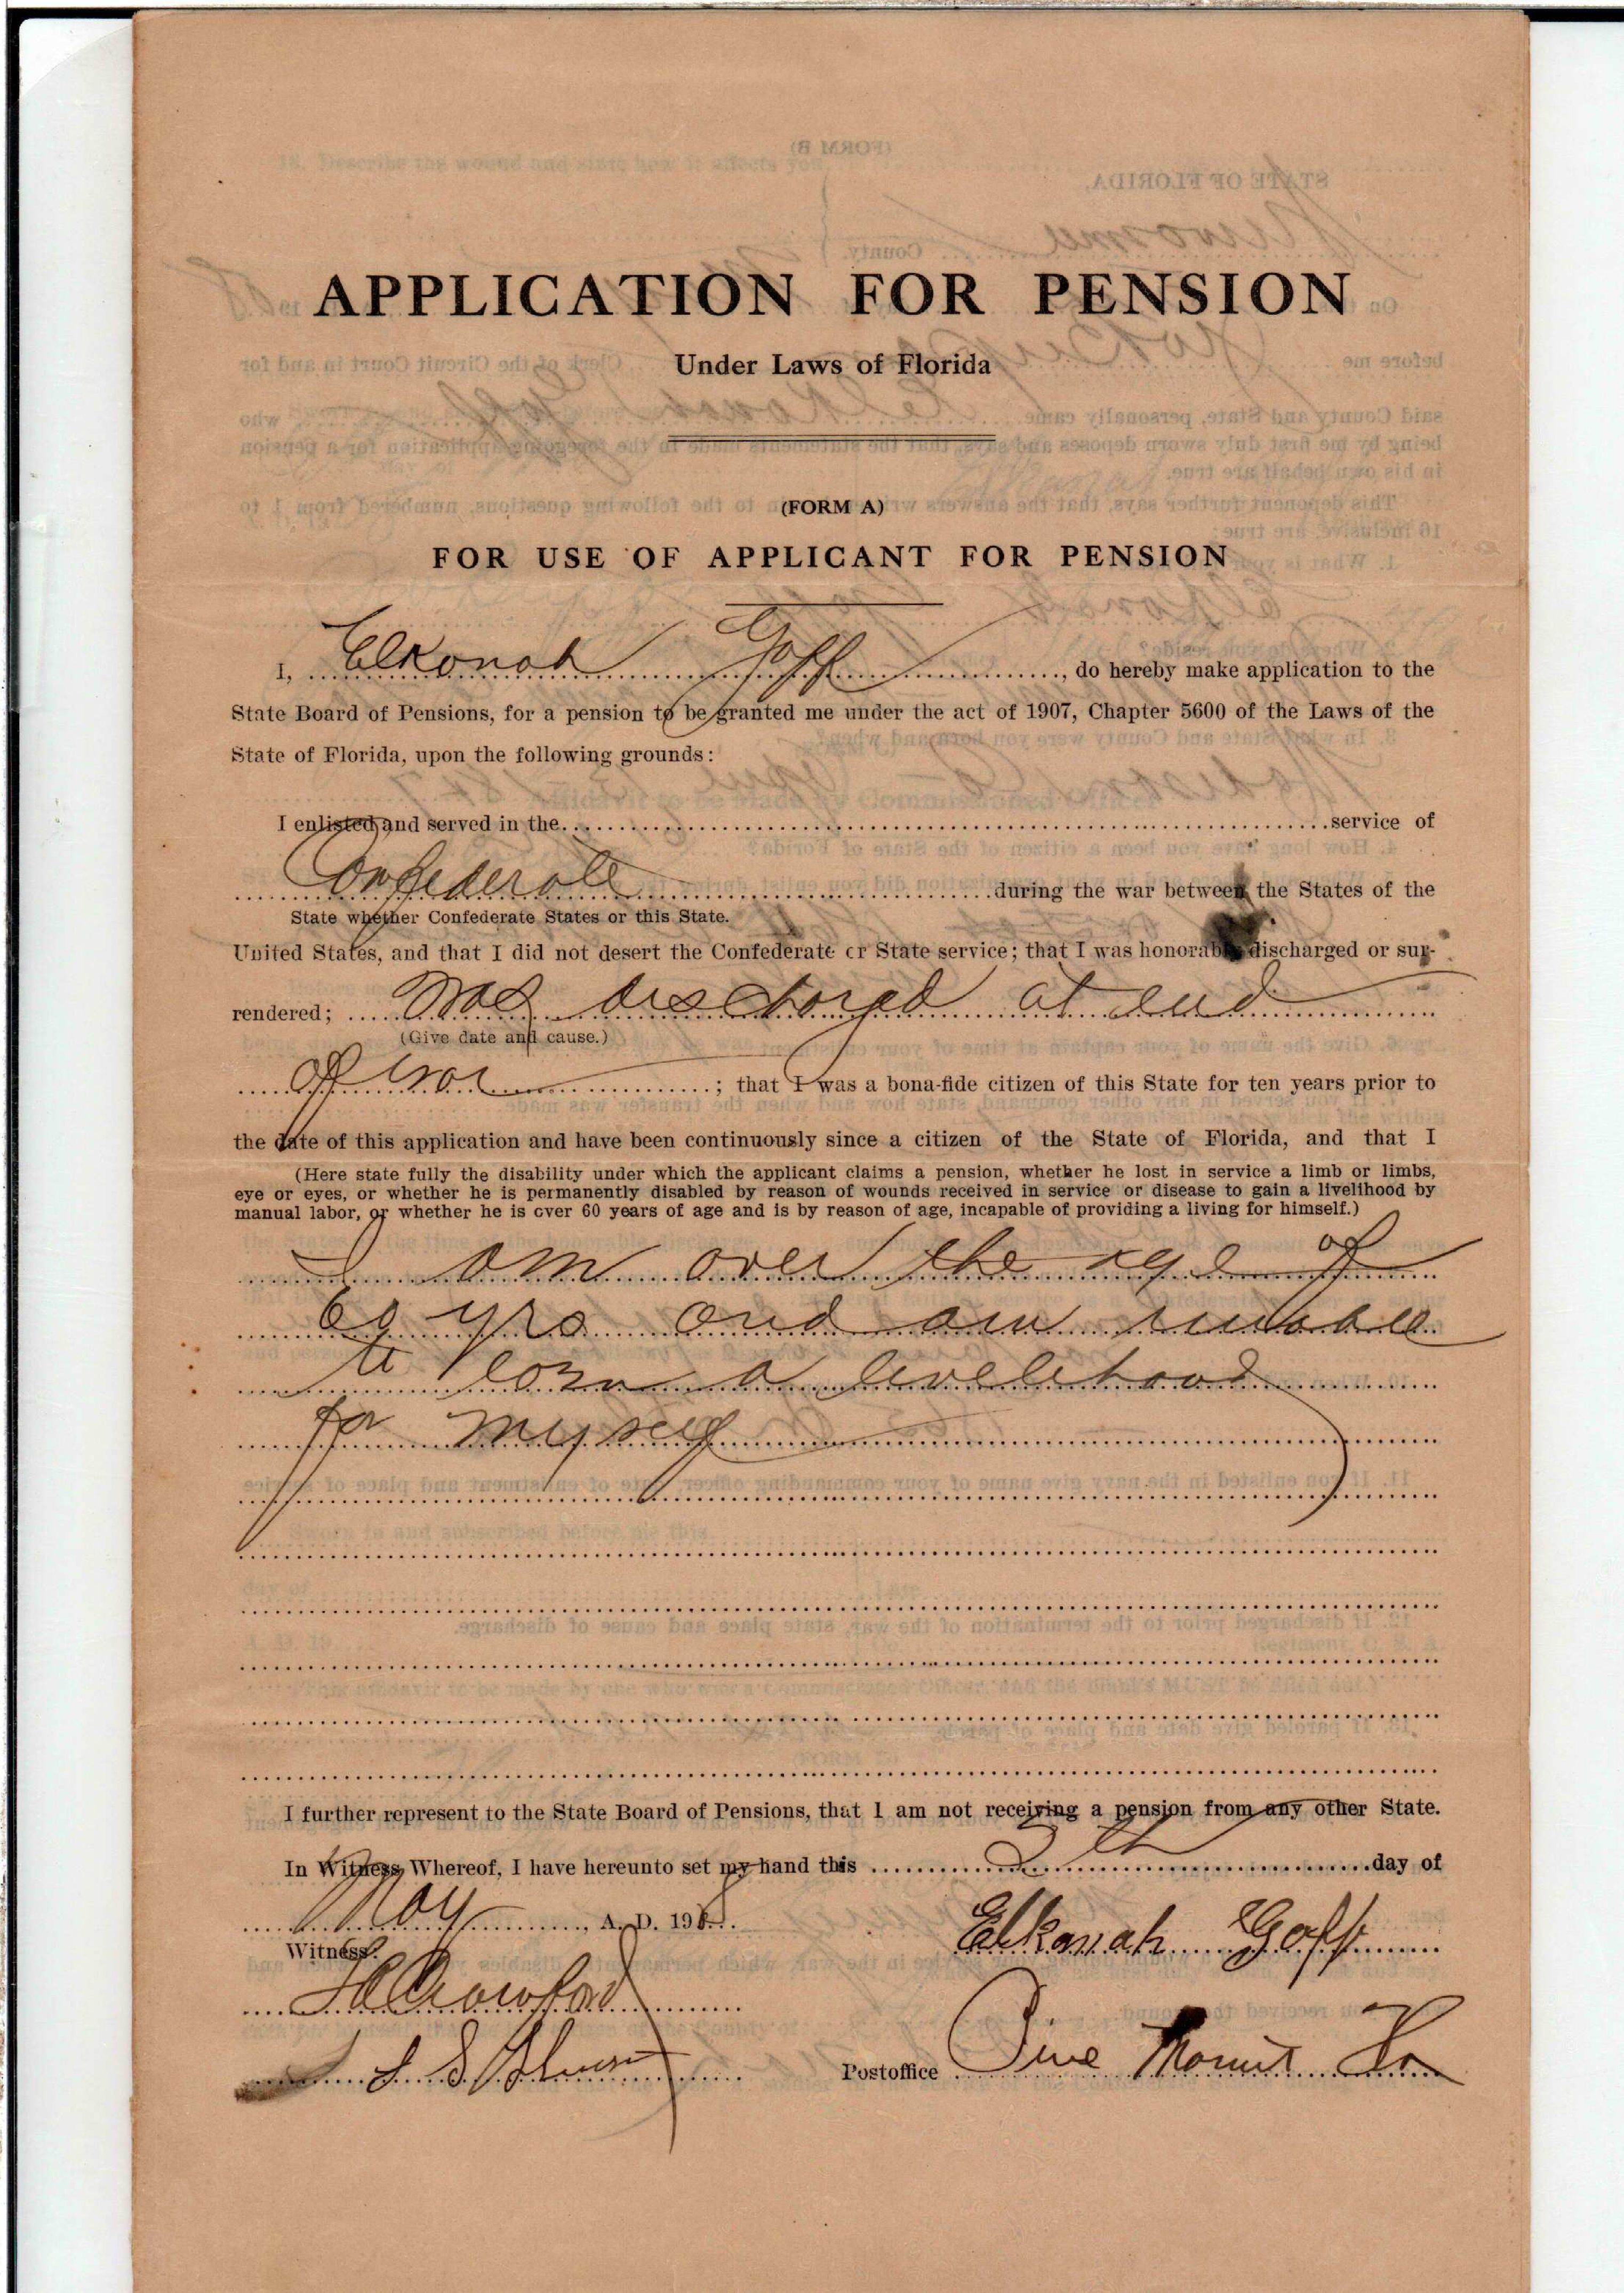 APPLICATION FOR PENSION
Under Laws of Florida
(FORM A)
FOR USE OF APPLICANT FOR PENSION
I, Elkonah Goff, do hereby make application to the
State Board of Pensions, for a pension to be granted me under the act of 1907, Chapter 5600 of the Laws of the
State of Florida, upon the following grounds:
I enlisted and served in the service of
Confederate during the war between the States of the
State whether Confederate States or this State.
United States, and that I did not desert the Confederate or State service; that I was honorably discharged or sur-
rendered; Was discharged at end
(Give date and cause.)
of war; that I was a bona-fide citizen of this State for ten years prior to
the date of this application and have been continuously since a citizen of the State of Florida, and that I
(Here state fully the disability under which the applicant claims a pension, whether he lost in service a limb or limbs,
eye or eyes, or whether he is permanently disabled by reason of wounds received in service or disease to gain a livelihood by
manual labor, or whether he is over 60 years of age and is by reason of age, incapable of providing a living for himself.)
I am over the age of
60 yrs and am unable
to earn a livelihood
for myself
I further represent to the State Board of Pensions, that I am not receiving a pension from any other State.
In Witness Whereof, I have hereunto set my hand this 5th day of
May, A. D. 1908.
Elkanah Goff
Witness:
Crawford
Postoffice Pine Mount Fla